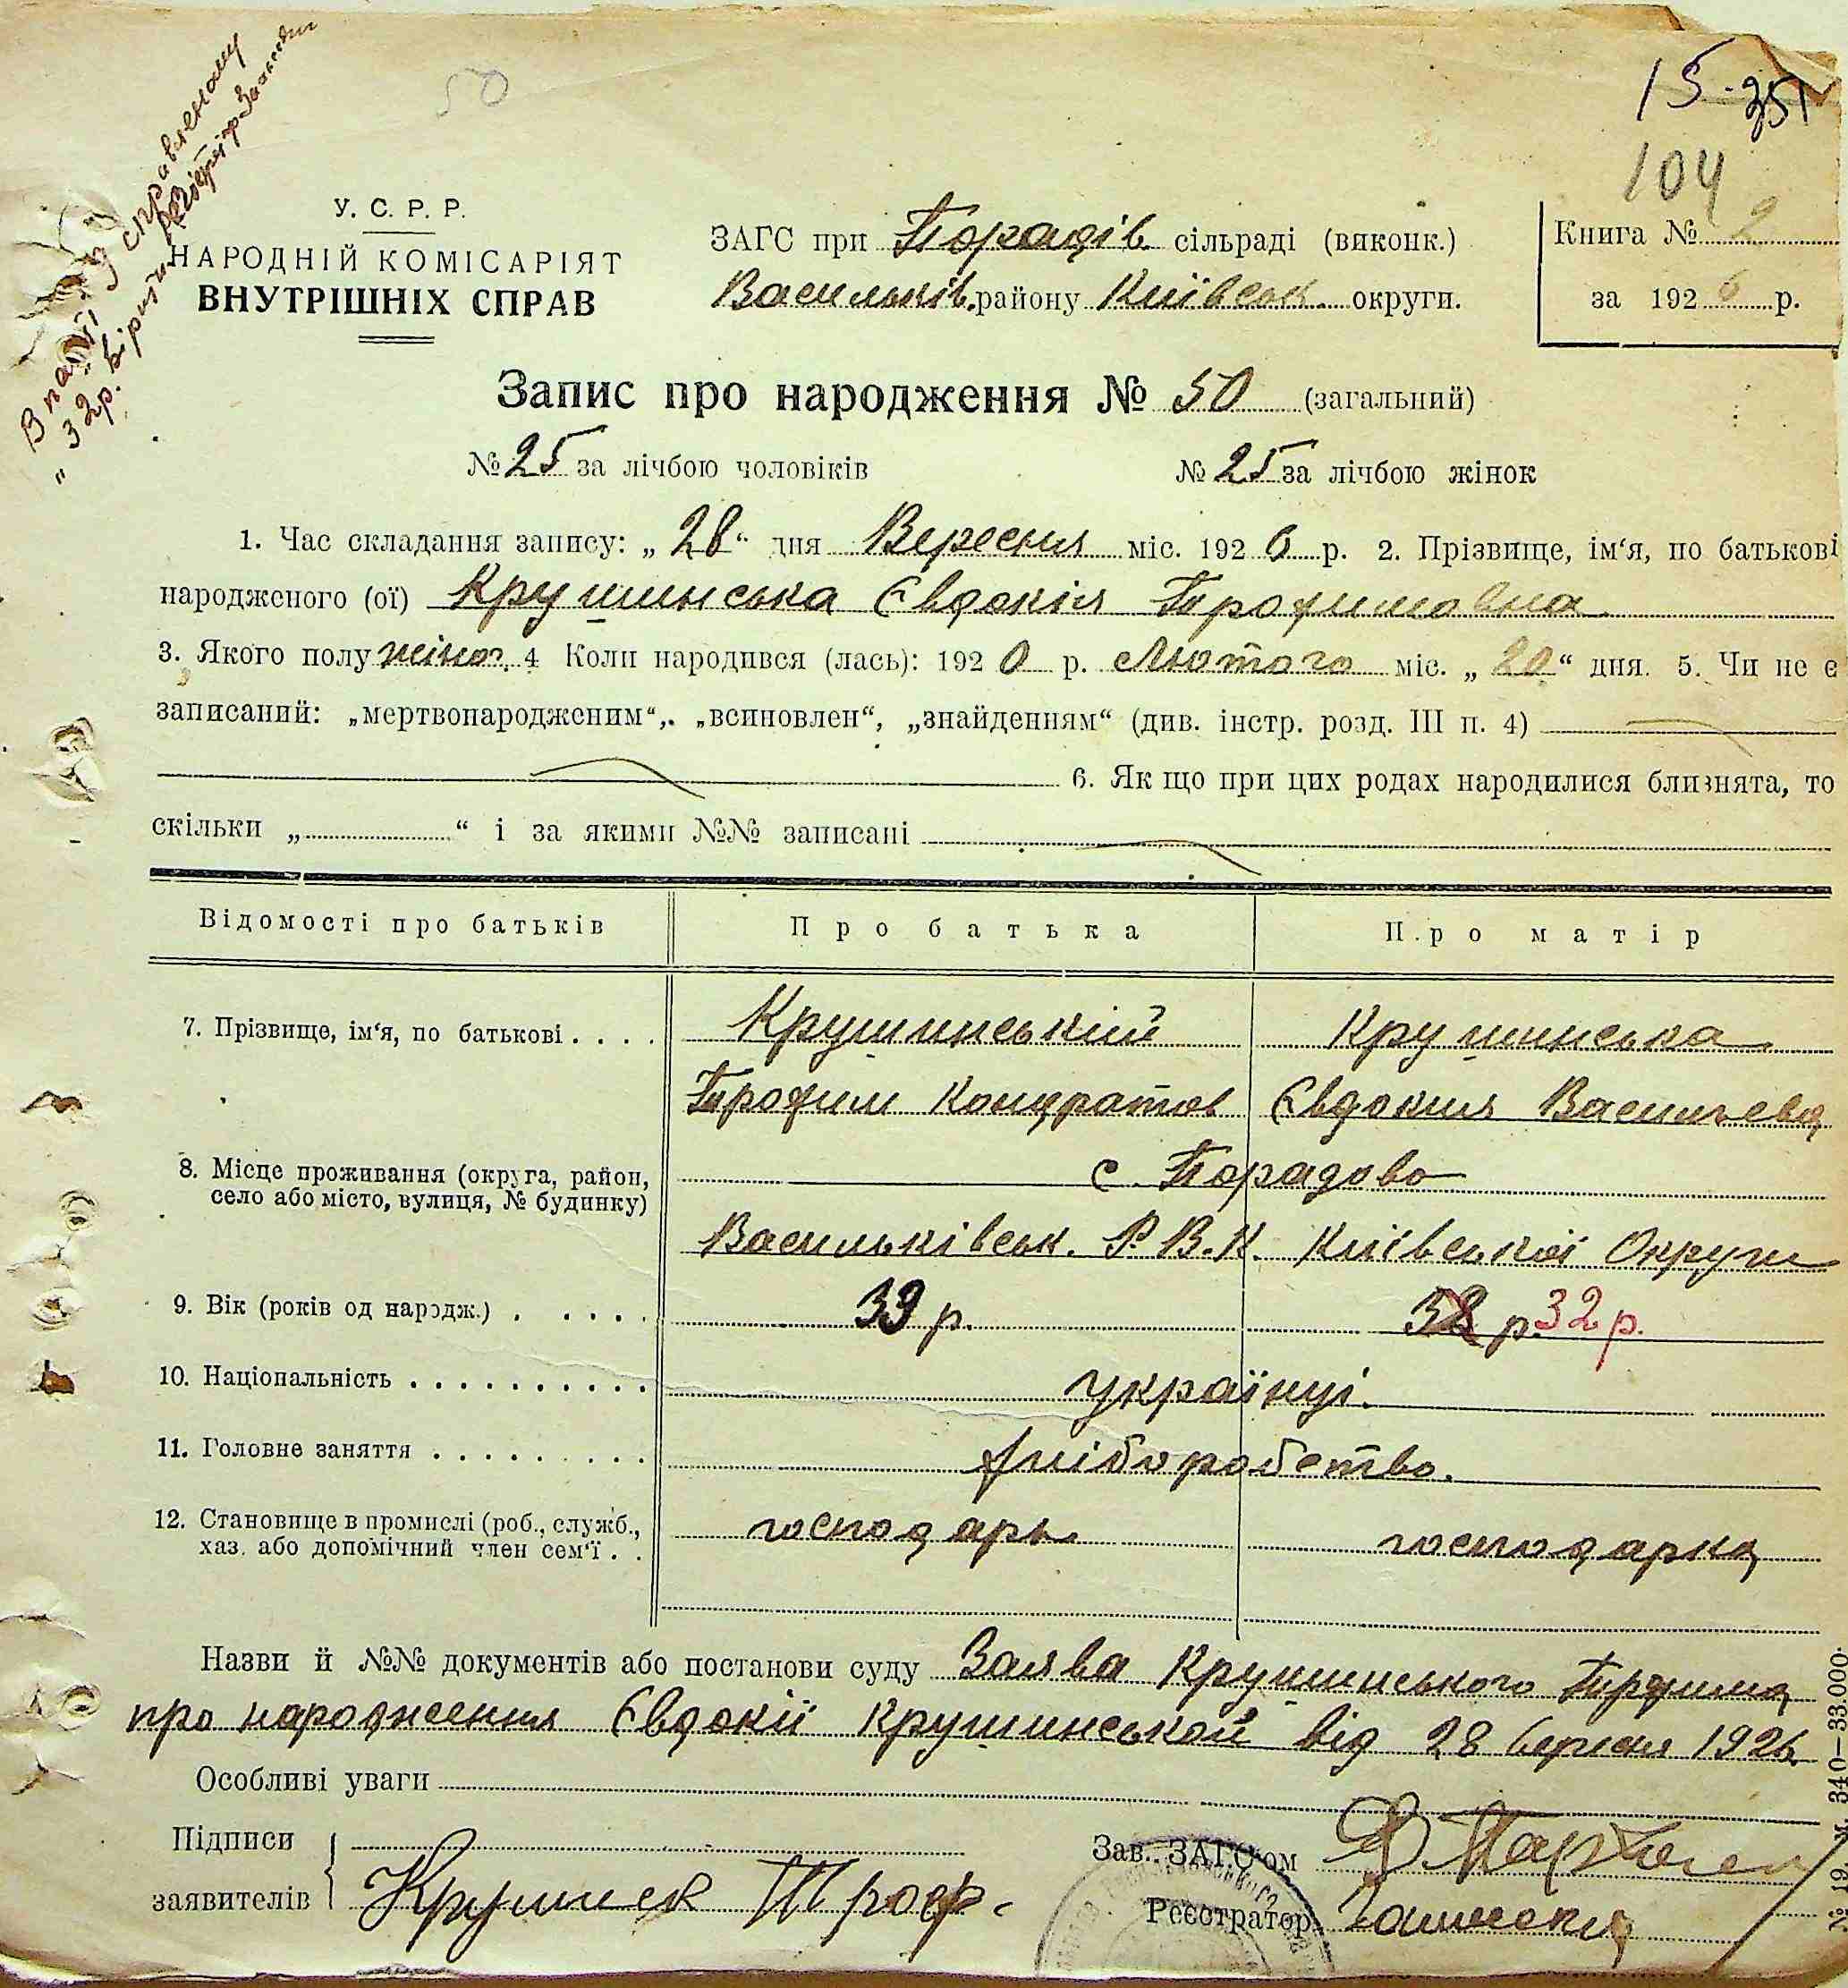 В пагіні у справленому
"32р. вірити
50
15.
351
104
У. С. Р. Р.
НАРОДНІЙ КОМІСАРІЯТ
ВНУТРІШНІХ СПРАВ
ЗАГС при Порадів. сільраді (виконк.)
Васильків. району Київськ. округи.
Книга № 2
за 1926 р.
Запис про народження № 50 (загальний)
№ 25 за лічбою чоловіків № 25 за лічбою жінок
1. Час складання запису: „28“ дня Вересня міс. 1926 р. 2. Прізвище, ім‘я, по батькові
народженого (ої) Крушинська Євдокія Трофимовна
3. Якого полу жіноч. 4 Коли народився (лась): 1920 р. Лютого міс. „20“ дня. 5. Чи не є
записаний: „мертвонародженим“, „всиновлен“, „знайденням“ (див. інстр. розд. III п. 4)
6. Як що при цих родах народилися близнята, то
скільки „ “ і за якими №№ записані
Відомості про батьків Про батька Про матір
7. Прізвище, ім‘я, по батькові . . . . Крушинський Крушинська
Трофим Кондратов Євдокия Васильева
8. Місце проживання (округа, район, с. Порадово
село або місто, вулиця, № будинку)
Васильківськ. Р.В.К. Київської Округи
9. Вік (років од народж.) . . . . . 39 р. 38 р. 32 р.
10. Національність . . . . . . . . . . українці.
11. Головне заняття . . . . . . . . . хліборобство.
12. Становище в промислі (роб., служб., господарь господарка
хаз. або допомічний член сем‘ї . .
Назви й №№ документів або постанови суду Заява Крушинського Трофима
про народження Євдокії Крушинськой від 28 вересня 1926
Особливі уваги
Підписи
заявителів Крушинск Троф.
Зав. ЗАГС‘ом
Реєстратор
№ 19 м. 340—33.000.